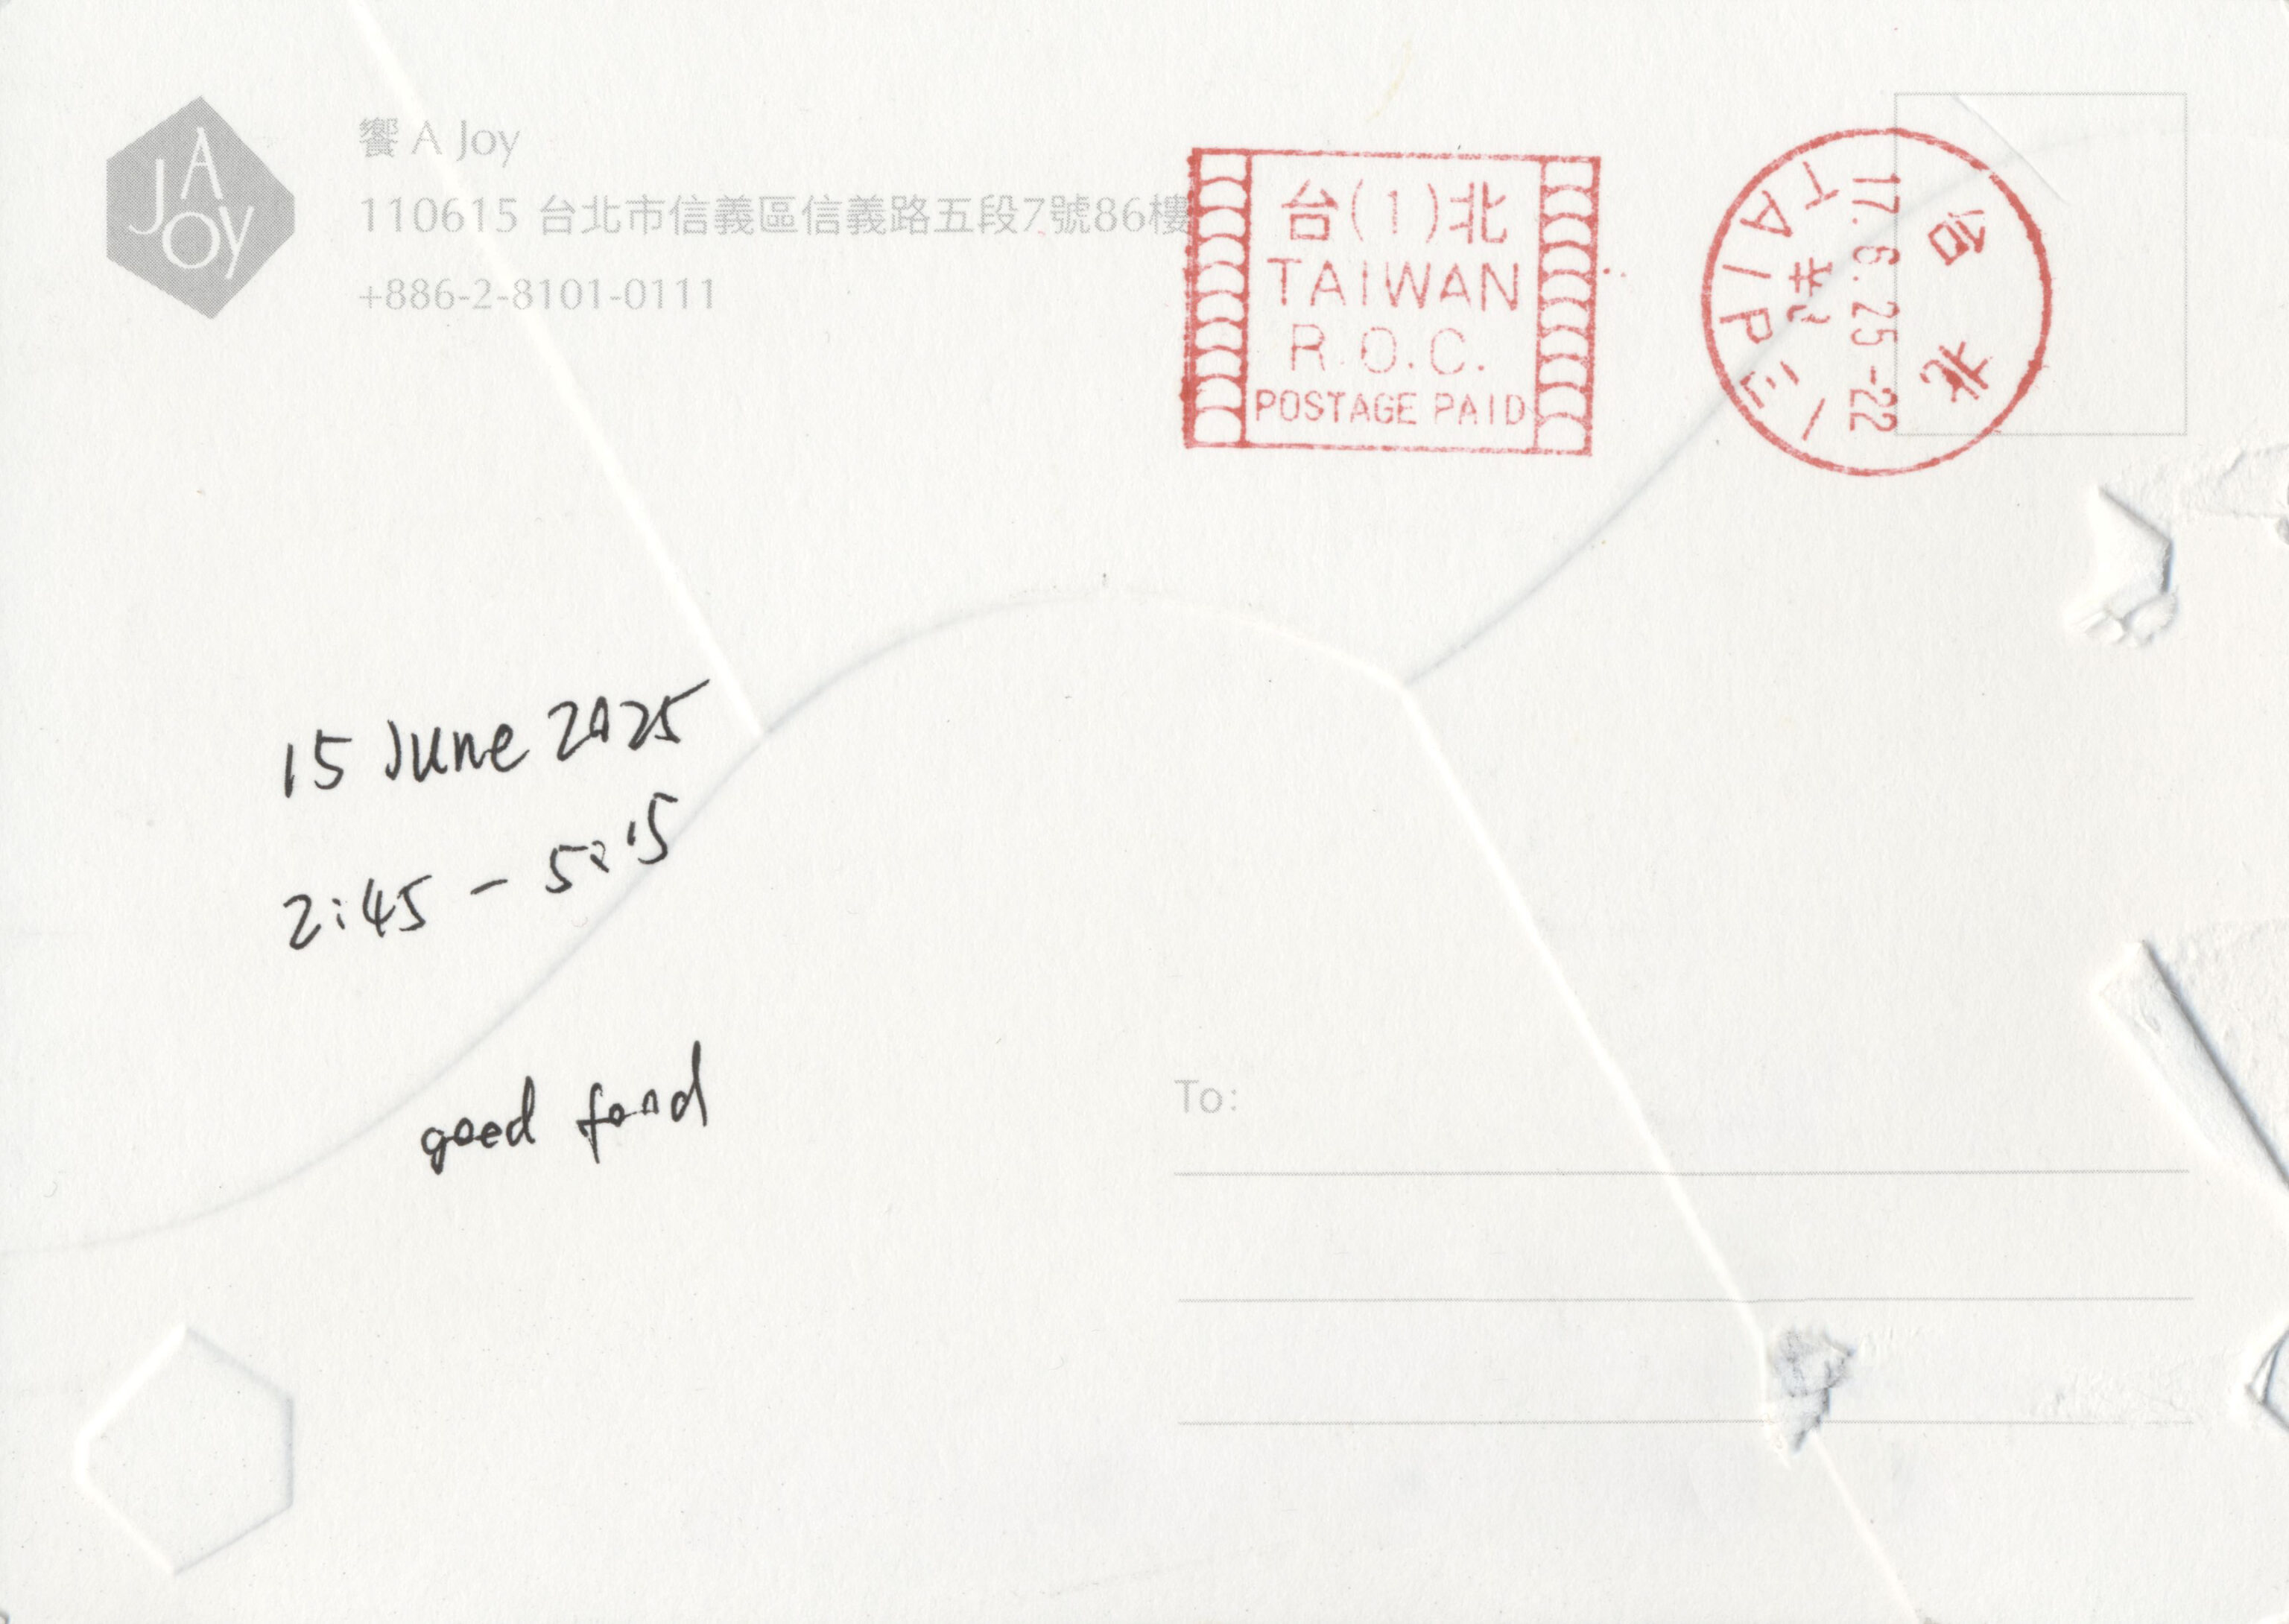 A
JOY
饗 A Joy
110615 台北市信義區信義路五段7號86樓
+886-2-8101-0111
台(1)北
TAIWAN
R.O.C.
POSTAGE PAID
台北
17.6.25-22
TAIPEI
15 June 2025
2:45 - 5:15
good food
To: